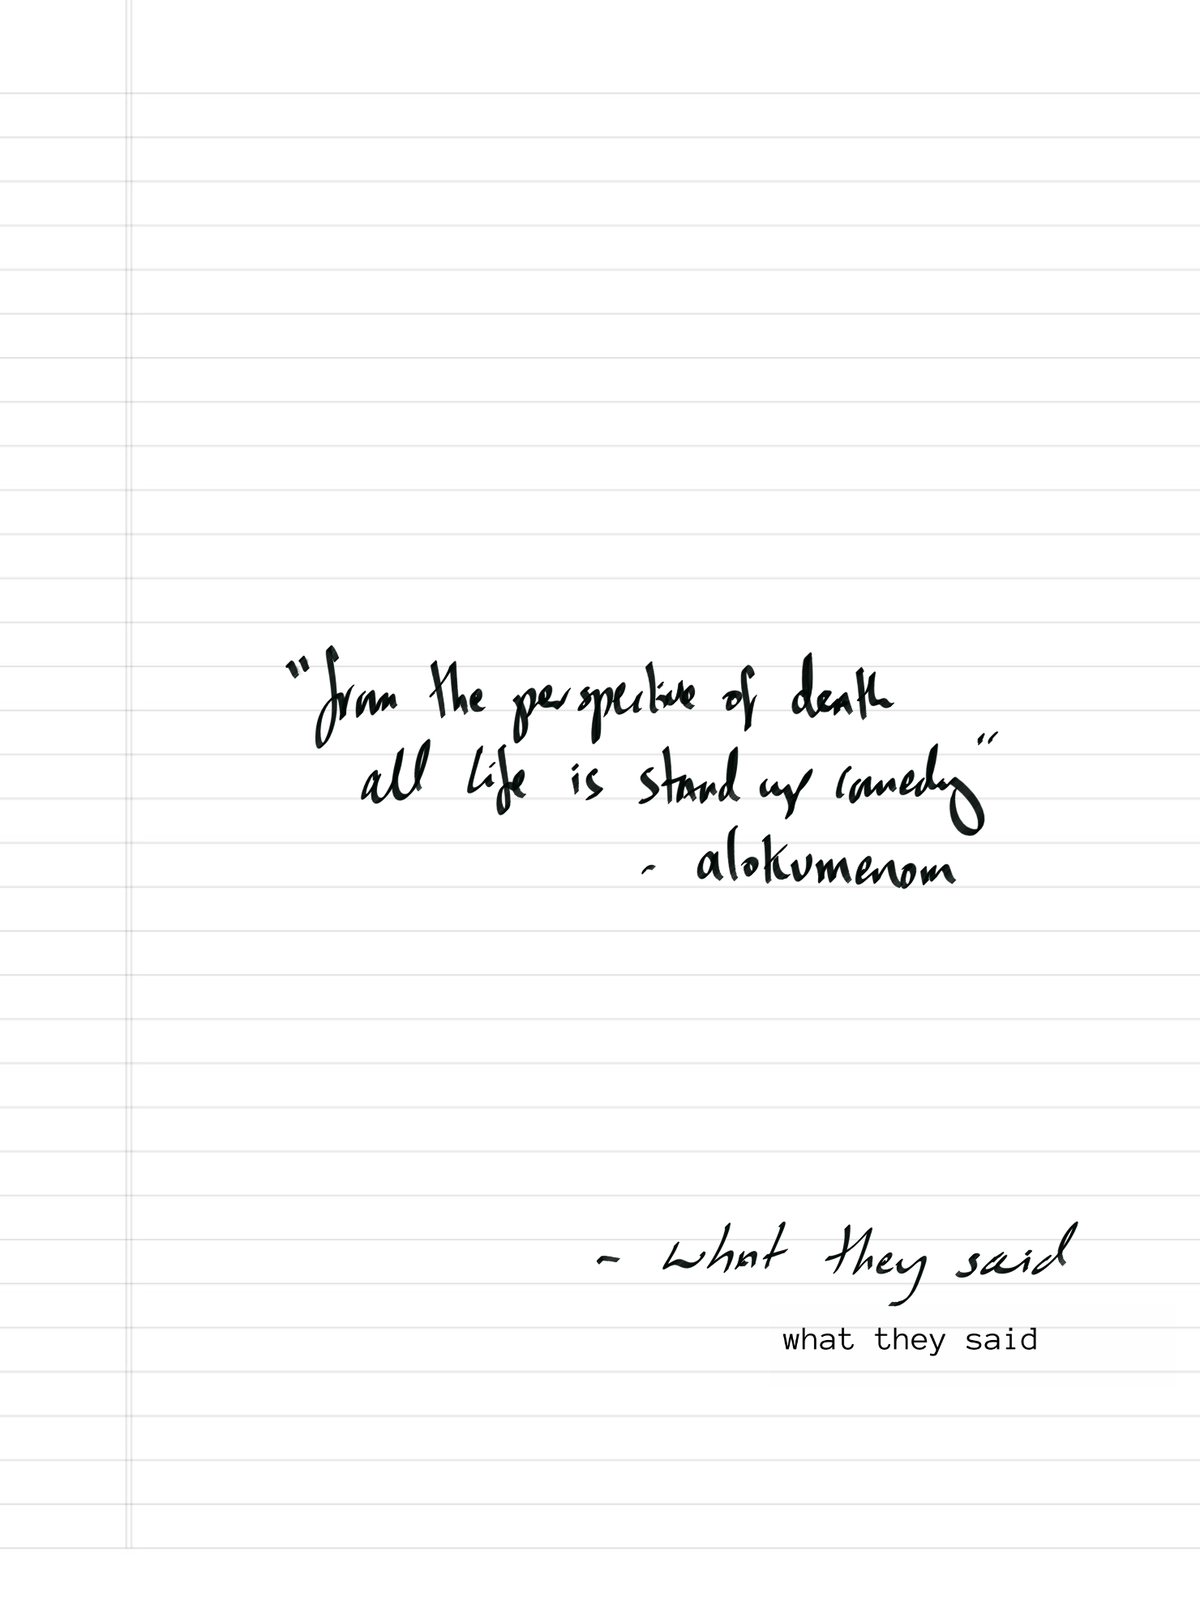 "from the perspective of death
all life is stand up comedy"
- alokvmenon
- what they said
what they said